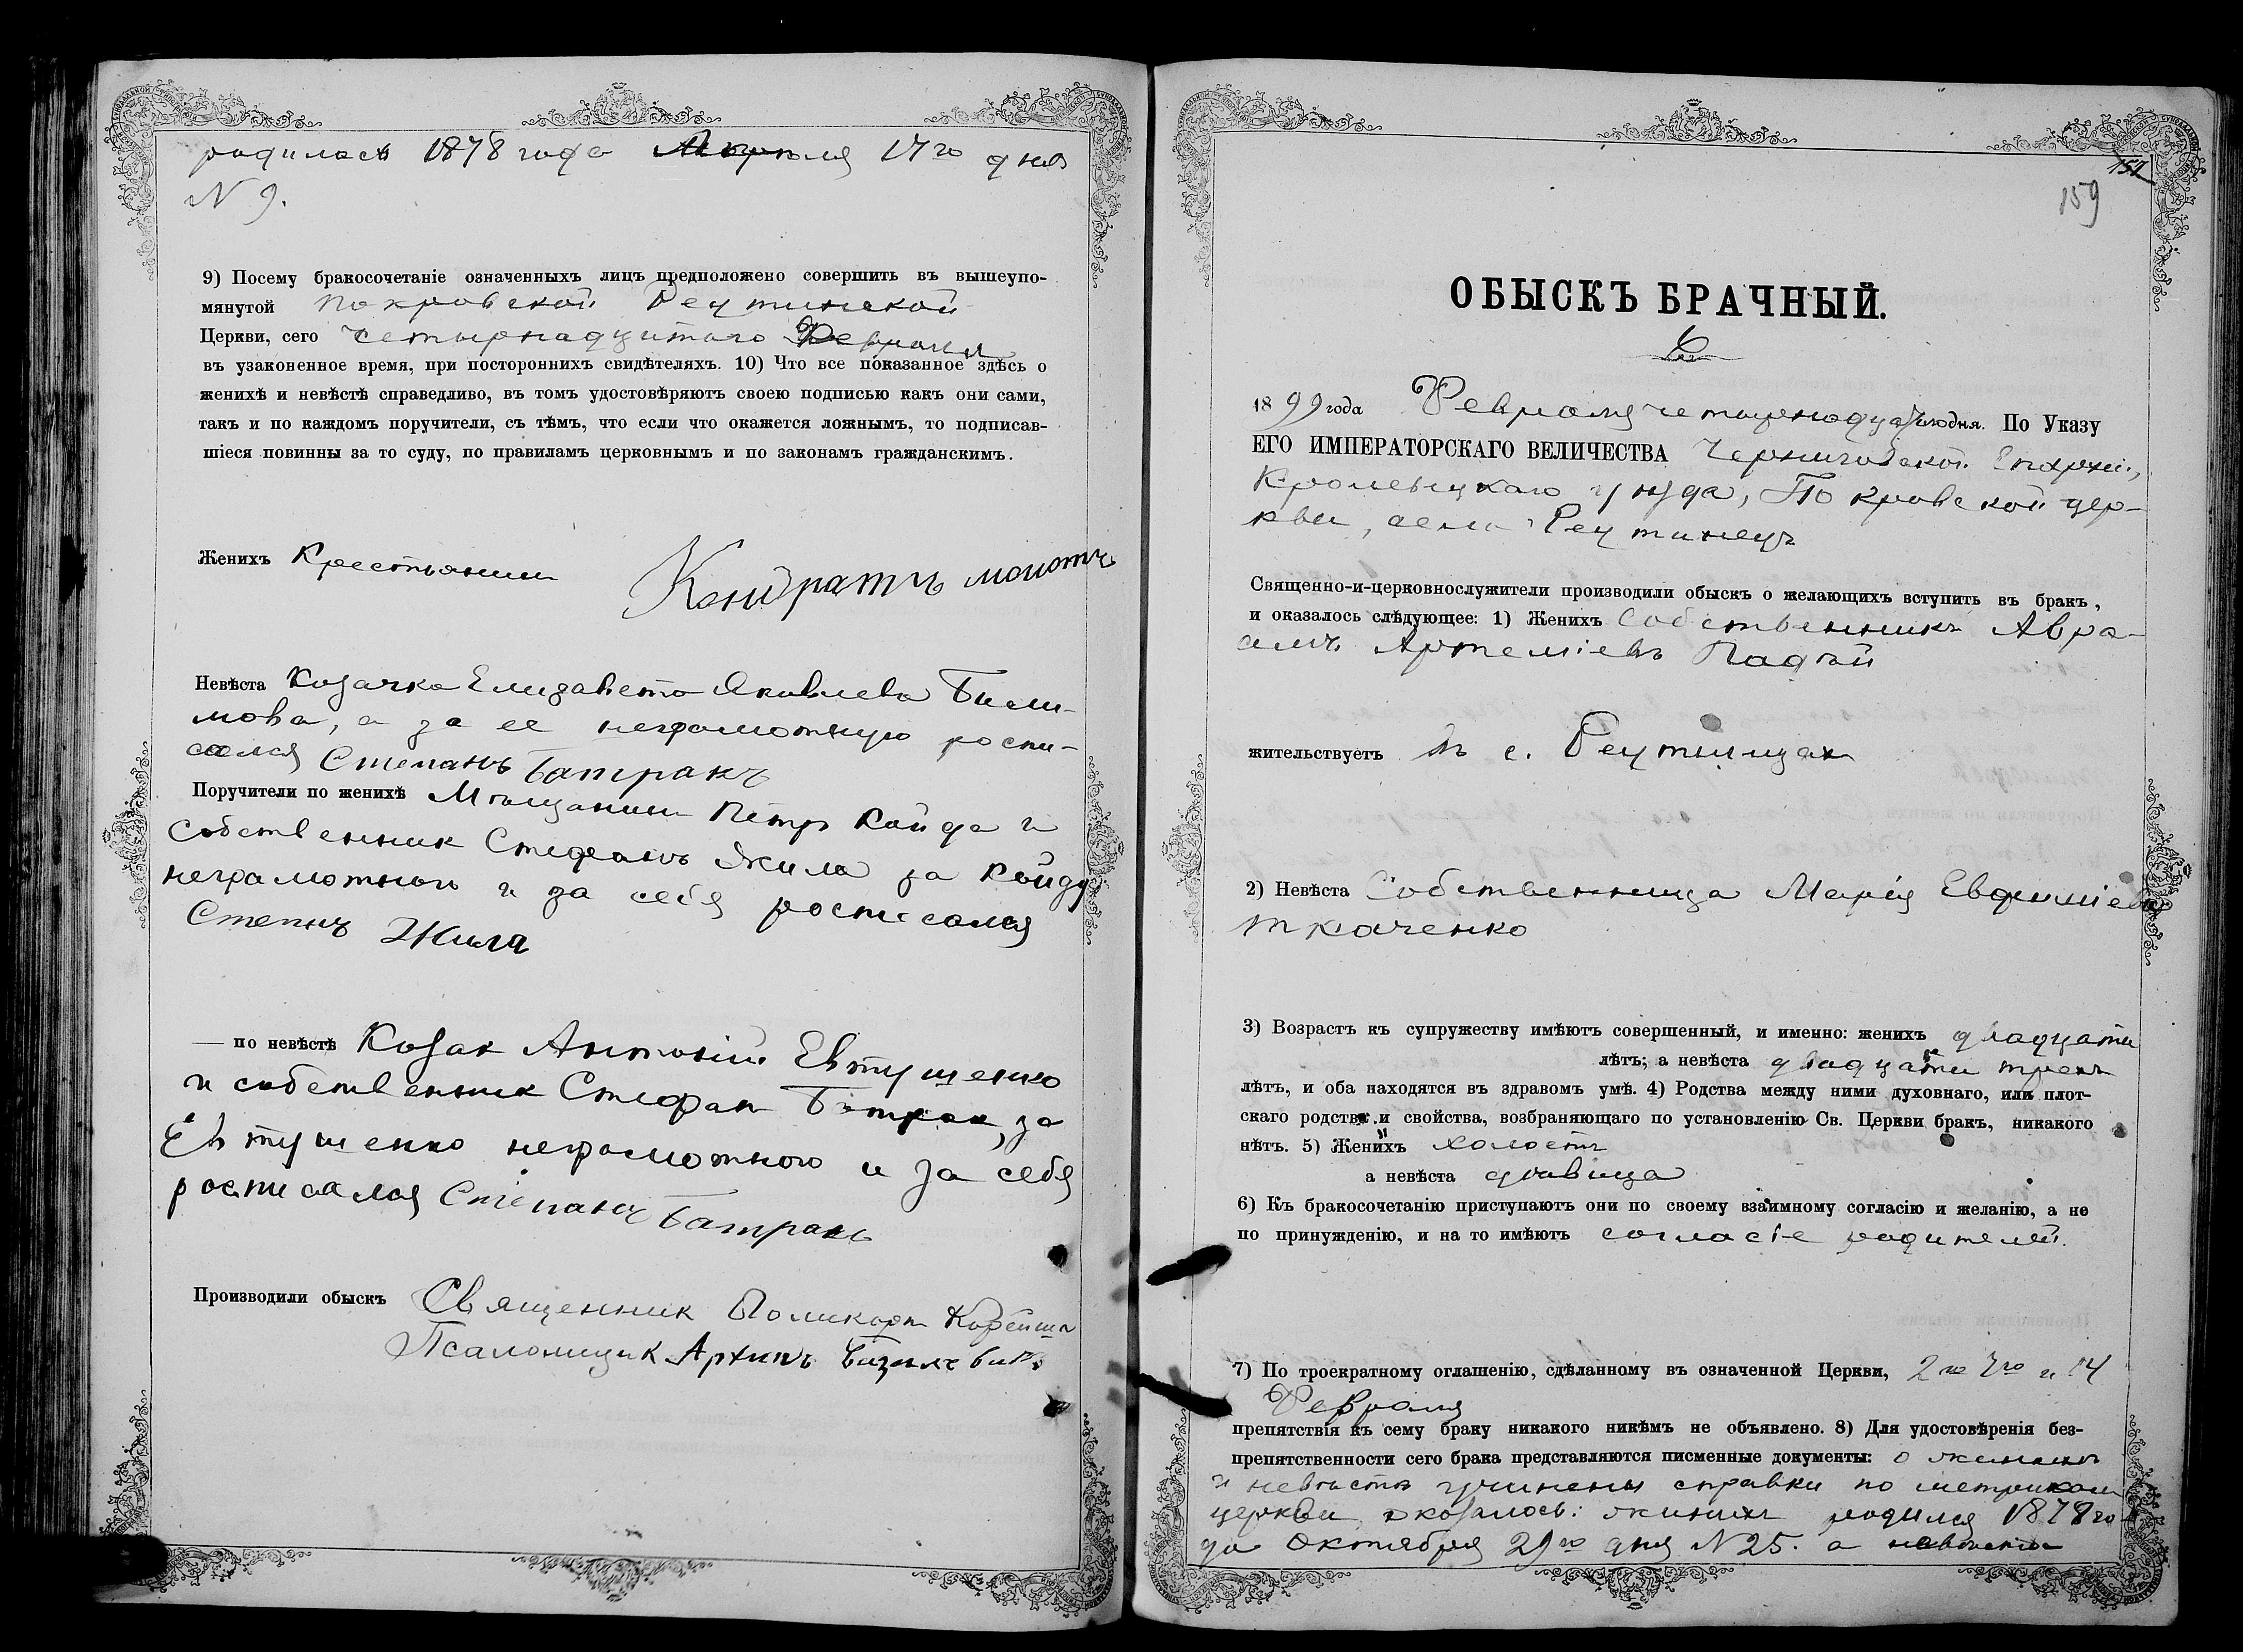 родилась 1878 года Апреля 17го дня
N 9.
9) Посему бракосочетаніе означенныхъ лицъ предположено совершить въ вышеупо-
мянутой Покровской Реутинской
Церкви, сего четырнадцятаго Февраля
въ узаконенное время, при постороннихъ свидѣтеляхъ. 10) Что все показанное здѣсь о
женихѣ и невѣстѣ справедливо, въ томъ удостовѣряютъ своею подписью какъ они сами,
такъ и по каждомъ поручители, съ тѣмъ, что если что окажется ложнымъ, то подписав-
шіеся повинны за то суду, по правиламъ церковнымъ и по законамъ гражданскимъ.
Женихъ Крестьянин Кондратъ
Невѣста Козачка Елизавета Яковлева
а за ее неграмотную роспи-
сался Степанъ Батракъ
Поручители по женихѣ Мѣщанин Петр Койда и
собственник Стефанъ Жила за Койду
неграмотного и за себя росписался
Степнъ Жила
— по невѣстѣ Козак Антоній Евтушенко
и собственник Стефан Батрак, за
Евтушенко неграмотного и за себя
росписался Степанъ Батракъ
Производили обыскъ Священник Поликарп
Псаломщик Архипъ
157
159
ОБЫСКЪ БРАЧНЫЙ.
1899 года Февраля четырнадца/того дня. По Указу
ЕГО ИМПЕРАТОРСКАГО ВЕЛИЧЕСТВА Черниговской Епархіи,
Кролевецкаго уѣзда, Покровской цер-
кви, села Реутинецъ
Священно-и-церковнослужители производили обыскъ о желающихъ вступить въ бракъ,
и оказалось слѣдующее: 1) Женихъ Собственникъ Авра-
амъ Артеміевъ Падтѣй
жительствуетъ въ с. Реутинцах
2) Невѣста Собственница Марія Евфиміева
Ткаченко
3) Возрастъ къ супружеству имѣютъ совершенный, и именно: женихъ двадцати
лѣтъ; а невѣста двадцати трехъ
лѣтъ, и оба находятся въ здравомъ умѣ. 4) Родства между ними духовнаго, или плот-
скаго родства и свойства, возбраняющаго по установленію Св. Церкви бракъ, никакого
нѣтъ. 5) Женихъ холостъ
а невѣста дѣвица
6) Къ бракосочетанію приступаютъ они по своему взаимному согласію и желанію, а не
по принужденію, и на то имѣютъ согласіе родителей.
7) По троекратному оглашенію, сдѣланному въ означенной Церкви, 2го 7го и 14
Февраля
препятствія къ сему браку никакого никѣмъ не объявлено. 8) Для удостовѣренія без-
препятственности сего брака представляются писменные документы: о женихѣ
и невѣстѣ учинены справки по метрикам
церкви оказалось: жених родился 1878 го
да Октября 29го дня N 25. а невѣста